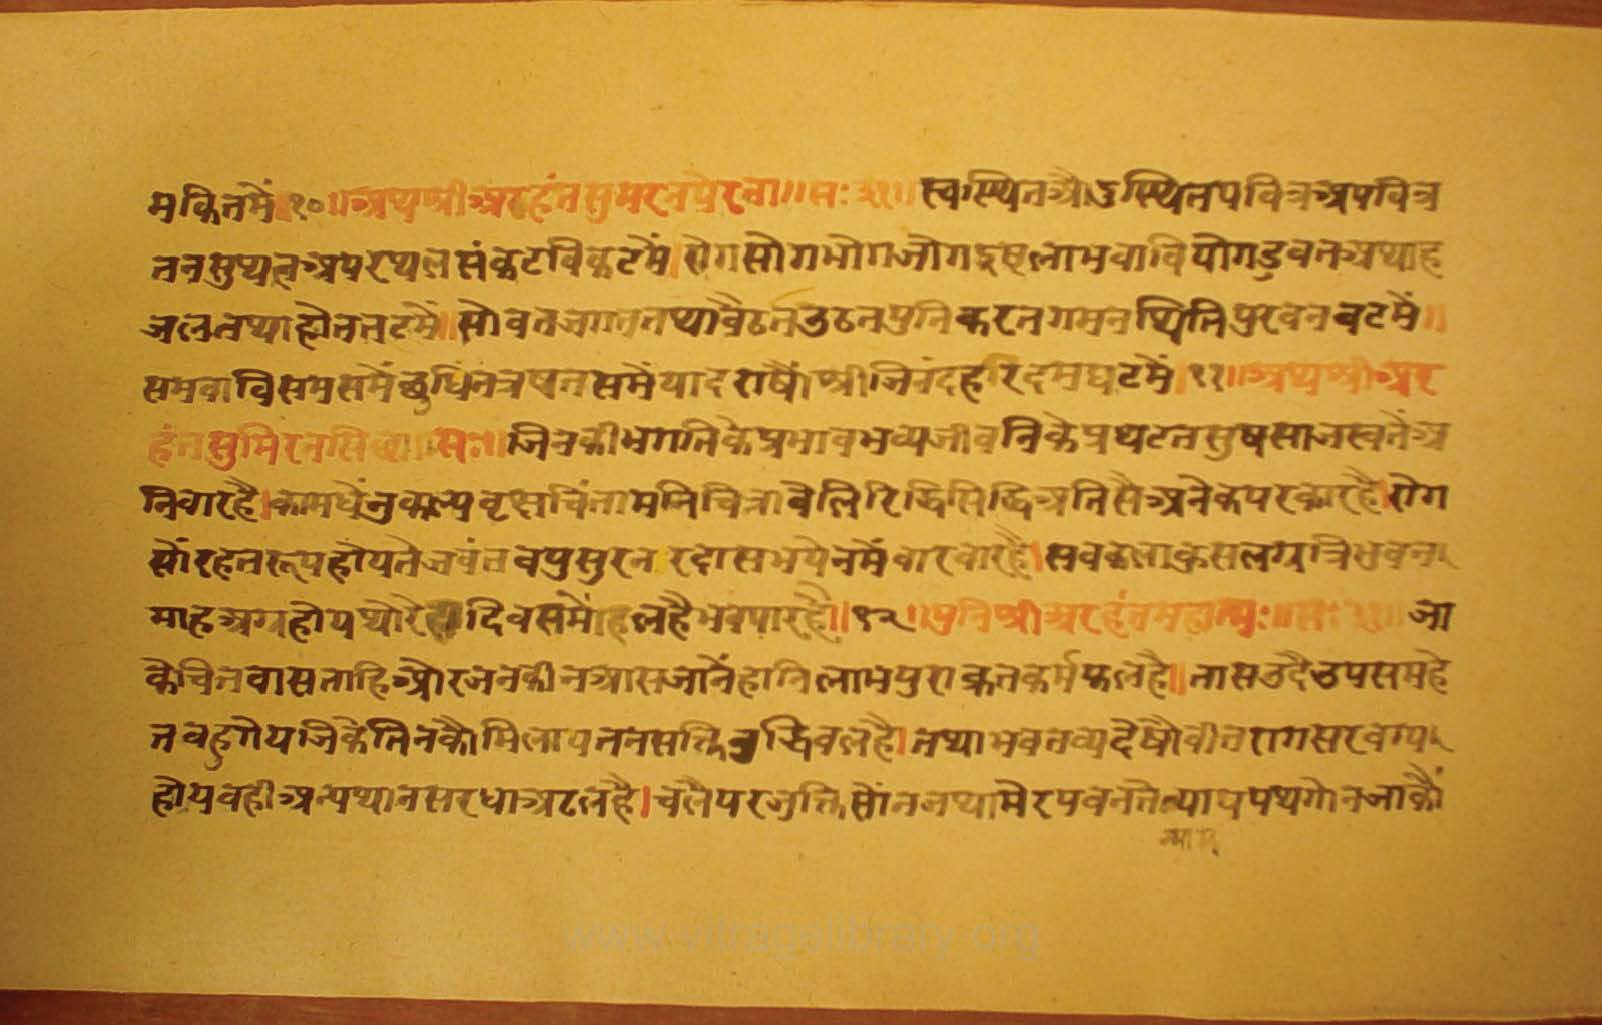 मकितमैं॥१०॥अथश्रीअरहंतसुमरनप्रेरना॥स:३१॥स्वस्थितऔउस्थितपवित्रअपवित्र
तनसुथलअपरथलसंकटविकटमैं।रोगसोगभोगजोगदुषलाभवावियोगडुवतअथाह
जलेतथाहोततटमैं॥सोवतजागततथावैठतउठनपुनिकरतगमनथितिपुरवेनवटमैं॥
समवाविसमसमैंछुधितत्रषतसमैंयादराषौंश्रीजिनंदहरिदमघटमैं।११॥अथश्रीअर
हंतसुमिरन जिनकीभगतिकेप्रभावभव्यजीवनिकेप्रघटतसुषसाजस्वतैंअ
निवारहै।कामधैंनुकल्पवृक्षचिंतामनिचित्रावेलिरिद्धिसिद्धिअतिसैअनेकपरकारहै।रोग
सोंरहतरूपहोयतेजवंतवपुसुरनरदासभयेनमैंवारवारहै।सवकलाकुसलगर
माहअग्रहोयथोरे दिवस लहैभवपारहै॥१२॥प्रतिश्रीअरहंतमहात्म्य:॥ जा
केचितवासनाहिऔरजनकीनआसजानैंहानिलाभपुराक्रतकर्मफलहै॥तासउदैउपसमहे
तवहुगेयजिकेतिनकौमिलापतनसक्तिवुद्धिवलहै।तथाभवतव्यदेषौवीतरागसरवग्य
होयवहीअन्यथानसरधाअटलहै।चलैपरजुक्तिसोंनजथामेरपवनतैत्यापपथगोनजाकौं
www.vitragelibrary.org